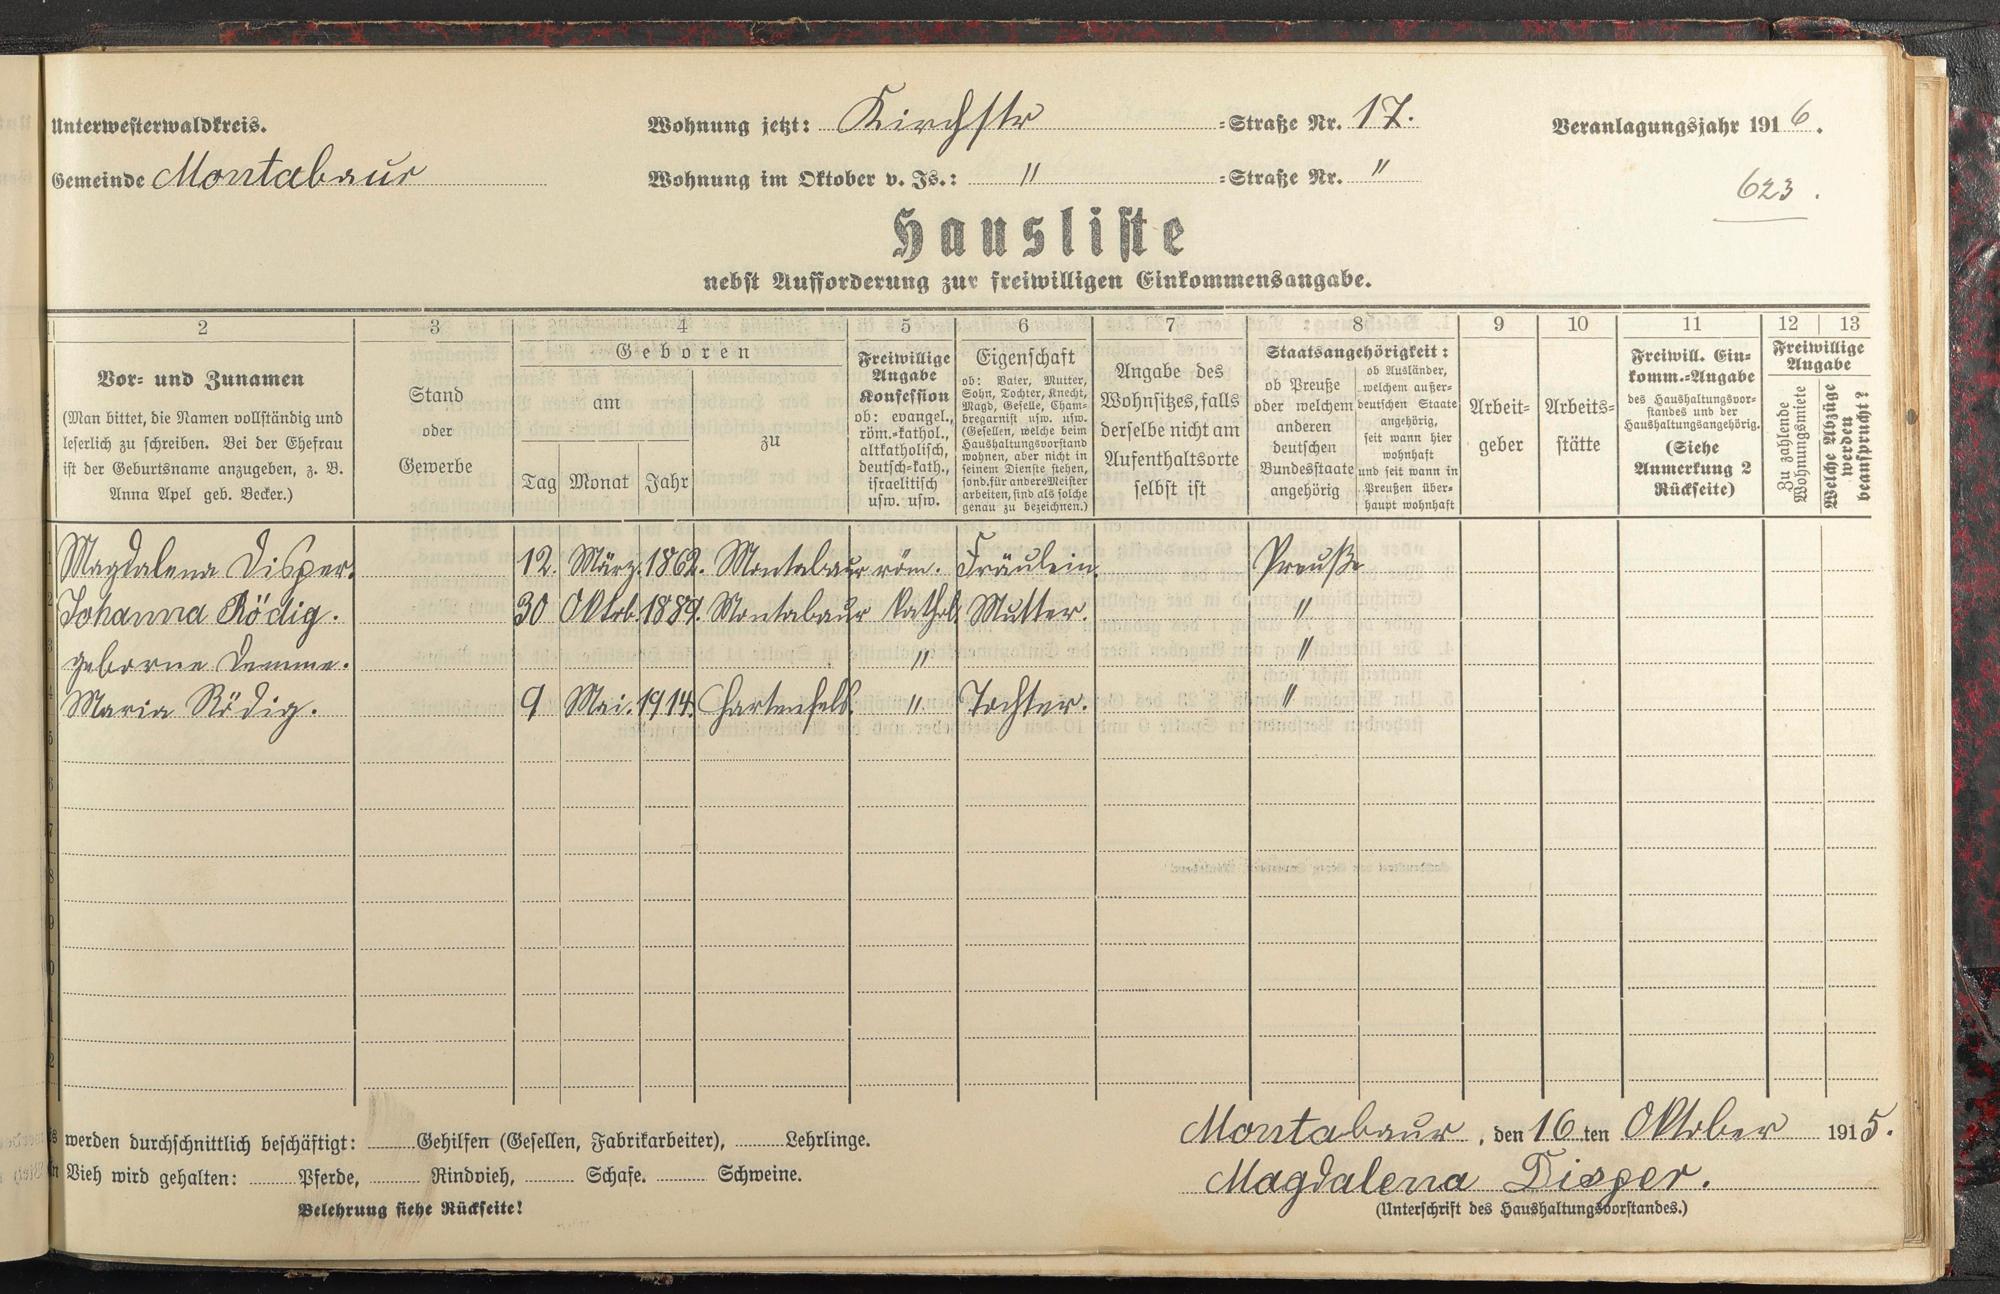 Unterwesterwaldkreis.
Wohnung jetzt: Kirchstr =Straße Nr. 17.
Veranlagungsjahr 1916.
Gemeinde Montabaur
Wohnung im Oktober v. Js.: " =Straße Nr. "
623.
Hausliste
nebst Aufforderung zur freiwilligen Einkommensangabe.
2 3 4 5 6 7 8 9 10 11 12 13
Vor- und Zunamen
(Man bittet, die Namen vollständig und
leserlich zu schreiben. Bei der Ehefrau
ist der Geburtsname anzugeben, z. B.
Anna Apel geb. Becker.)
Stand
oder
Gewerbe
Geboren
am
Tag Monat Jahr
zu
Freiwillige
Angabe
Konfession
ob: evangel.,
röm.-kathol.,
altkatholisch,
deutsch-kath.,
israelitisch
usw. usw.
Eigenschaft
ob: Vater, Mutter,
Sohn, Tochter, Knecht,
Magd, Geselle, Cham-
bregarnist usw. usw.
(Gesellen, welche beim
Haushaltungsvorstand
wohnen, aber nicht in
seinem Dienste stehen,
sond. für andere Meister
arbeiten, sind als solche
genau zu bezeichnen.)
Angabe des
Wohnsitzes, falls
derselbe nicht am
Aufenthaltsorte
selbst ist
Staatsangehörigkeit:
ob Preuße
oder welchem
anderen
deutschen
Bundesstaate
angehörig
ob Ausländer,
welchem außer-
deutschen Staate
angehörig,
seit wann hier
wohnhaft
und seit wann in
Preußen über-
haupt wohnhaft
Arbeit-
geber
Arbeits-
stätte
Freiwill. Ein-
komm.-Angabe
des Haushaltungsvor-
standes und der
Haushaltungsangehörig.
(Siehe
Anmerkung 2
Rückseite)
Freiwillige
Angabe
Zu zahlende
Wohnungsmiete
Welche Abzüge
werden
beansprucht?
1 Magdalena Disper. 12. März. 1862. Montabaur röm. Fräulein. Preuße
2 Johanna Rödig. 30 Oktob. 1889. Montabaur kathol. Mutter. "
3 geborne Demme. " "
4 Maria Rödig. 9 Mai. 1914. Hartenfels. " Tochter. "
5
6
7
8
9
0
1
2
werden durchschnittlich beschäftigt: Gehilfen (Gesellen, Fabrikarbeiter), Lehrlinge.
Montabaur, den 16 ten Oktober 1915.
Vieh wird gehalten: Pferde, Rindvieh, Schafe. Schweine.
Magdalena Disper.
Belehrung siehe Rückseite!
(Unterschrift des Haushaltungsvorstandes.)